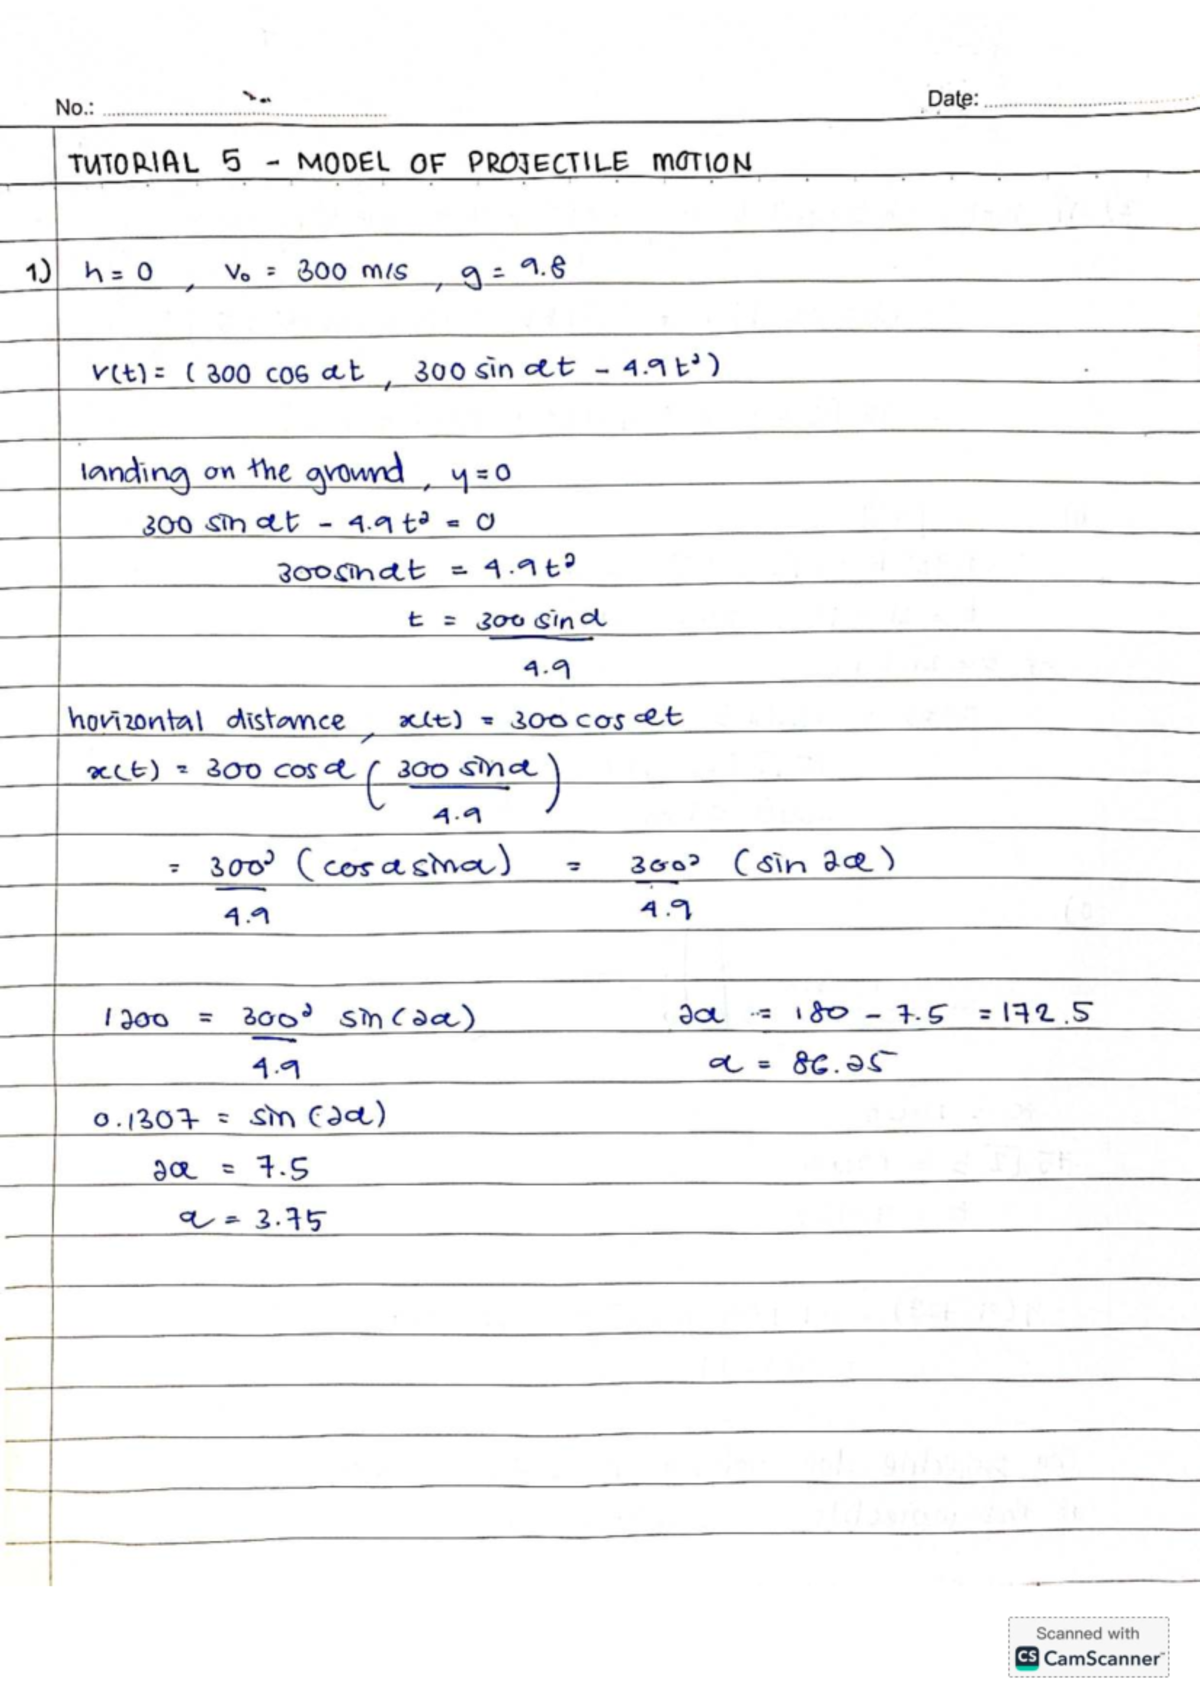 No.: Date:
TUTORIAL 5 - MODEL OF PROJECTILE MOTION
1) h = 0 , v₀ = 300 m/s , g = 9.8
r(t) = ( 300 cos αt , 300 sin αt - 4.9t² )
landing on the ground, y = 0
300 sin αt - 4.9t² = 0
300 sin αt = 4.9t²
t = 300 sin α
4.9
horizontal distance, x(t) = 300 cos αt
x(t) = 300 cos α ( 300 sin α )
4.9
= 300² ( cos α sin α ) = 300² ( sin 2α )
4.9 4.9
1200 = 300² sin (2α) 2α = 180 - 7.5 = 172.5
4.9 α = 86.25
0.1307 = sin (2α)
2α = 7.5
α = 3.75
Scanned with
CS CamScanner